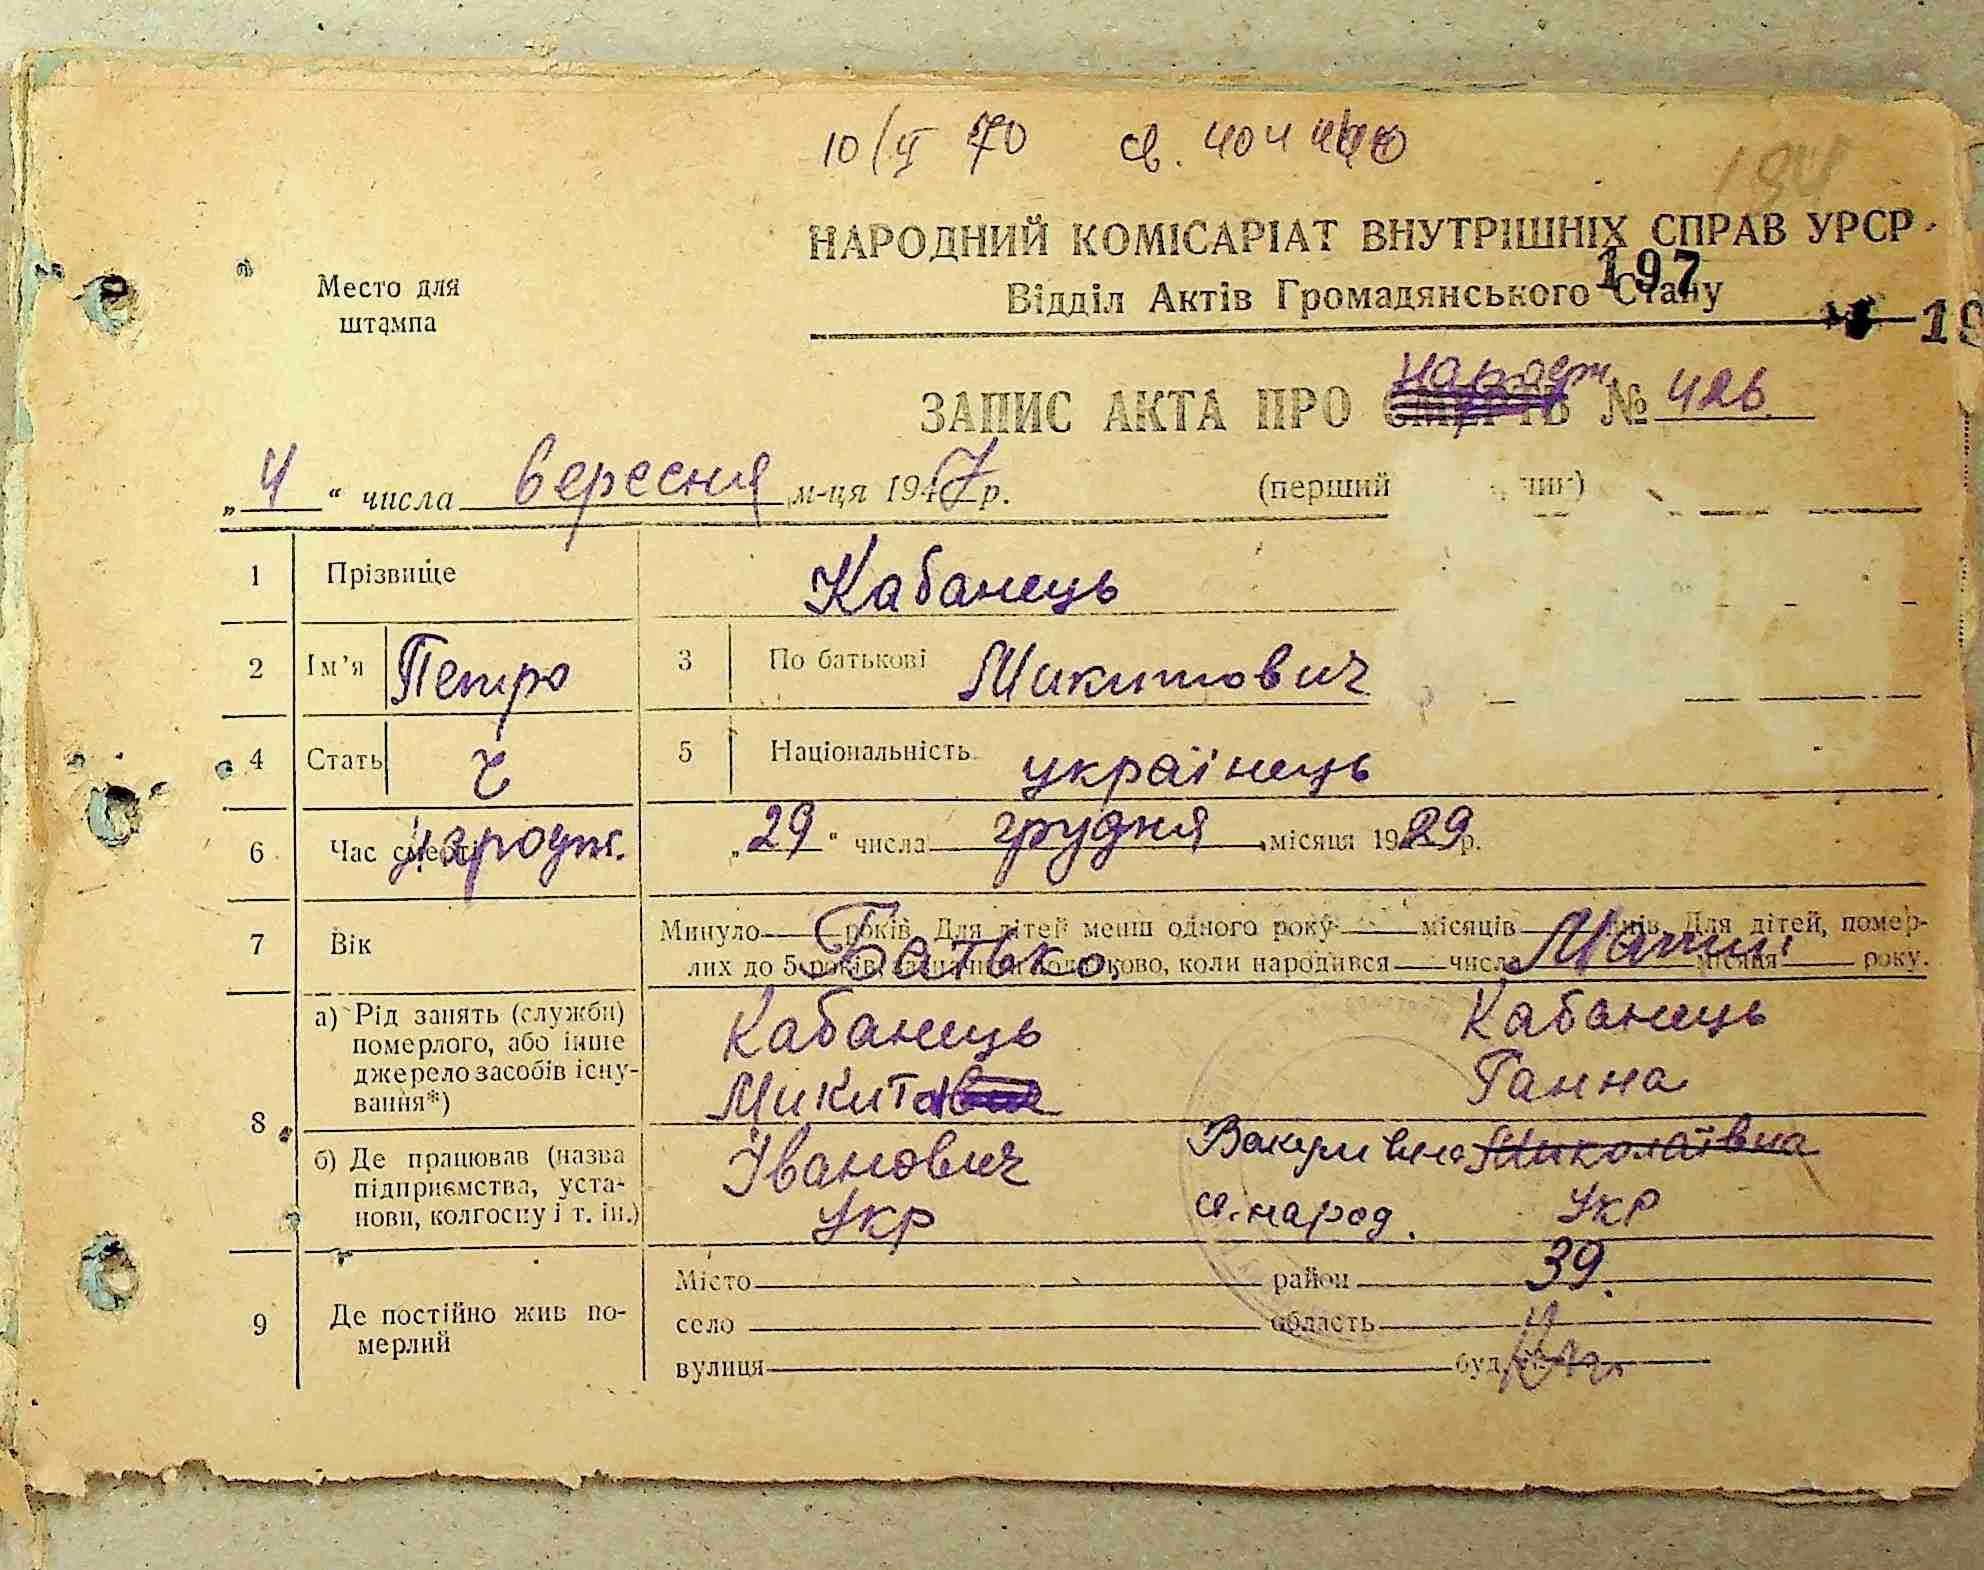 10/VI 70 св. 404
184
НАРОДНИЙ КОМІСАРІАТ ВНУТРІШНІХ СПРАВ УРСР
197
Місто для
штампа
Відділ Актів Громадянського Стану
19
народж
ЗАПИС АКТА ПРО СМЕРТЬ № 426
„ 4 “ числа вересня м-ця 1947 р. (перший
1 Прізвище Кабанець
2 Ім’я Петро 3 По батькові Микитович
4 Стать ч 5 Національність українець
6 Час смерті народж. „ 29 “ числа грудня місяця 1929 р.
7 Вік Минуло років. Для дітей менш одного року місяців днів. Для дітей, помер-
лих до 5 років, зазначити додатково, коли народився числа місяця року.
Батько Мати
8 а) Рід занять (служби)
померлого, або інше
джерело засобів існу-
вання*)
Кабанець Кабанець
Микита Ганна
б) Де працював (назва
підприємства, уста-
нови, колгоспу і т. ін.)
Іванович Вакулівна Миколаївна
Укр св. народ. Укр
39.
9 Де постійно жив по-
мерлий
Місто район
село область
вулиця буд.